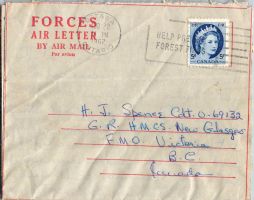 FORCES
AIR LETTER
BY AIR MAIL
Par avion
PM
1962
ONTARIO
HELP PRE
FOREST F
5
CANADA
5
H. J. Spence Cdt. O-69132
G. R. H.M.C.S. New Glasgow
F.M.O. Victoria
B.C.
Canada